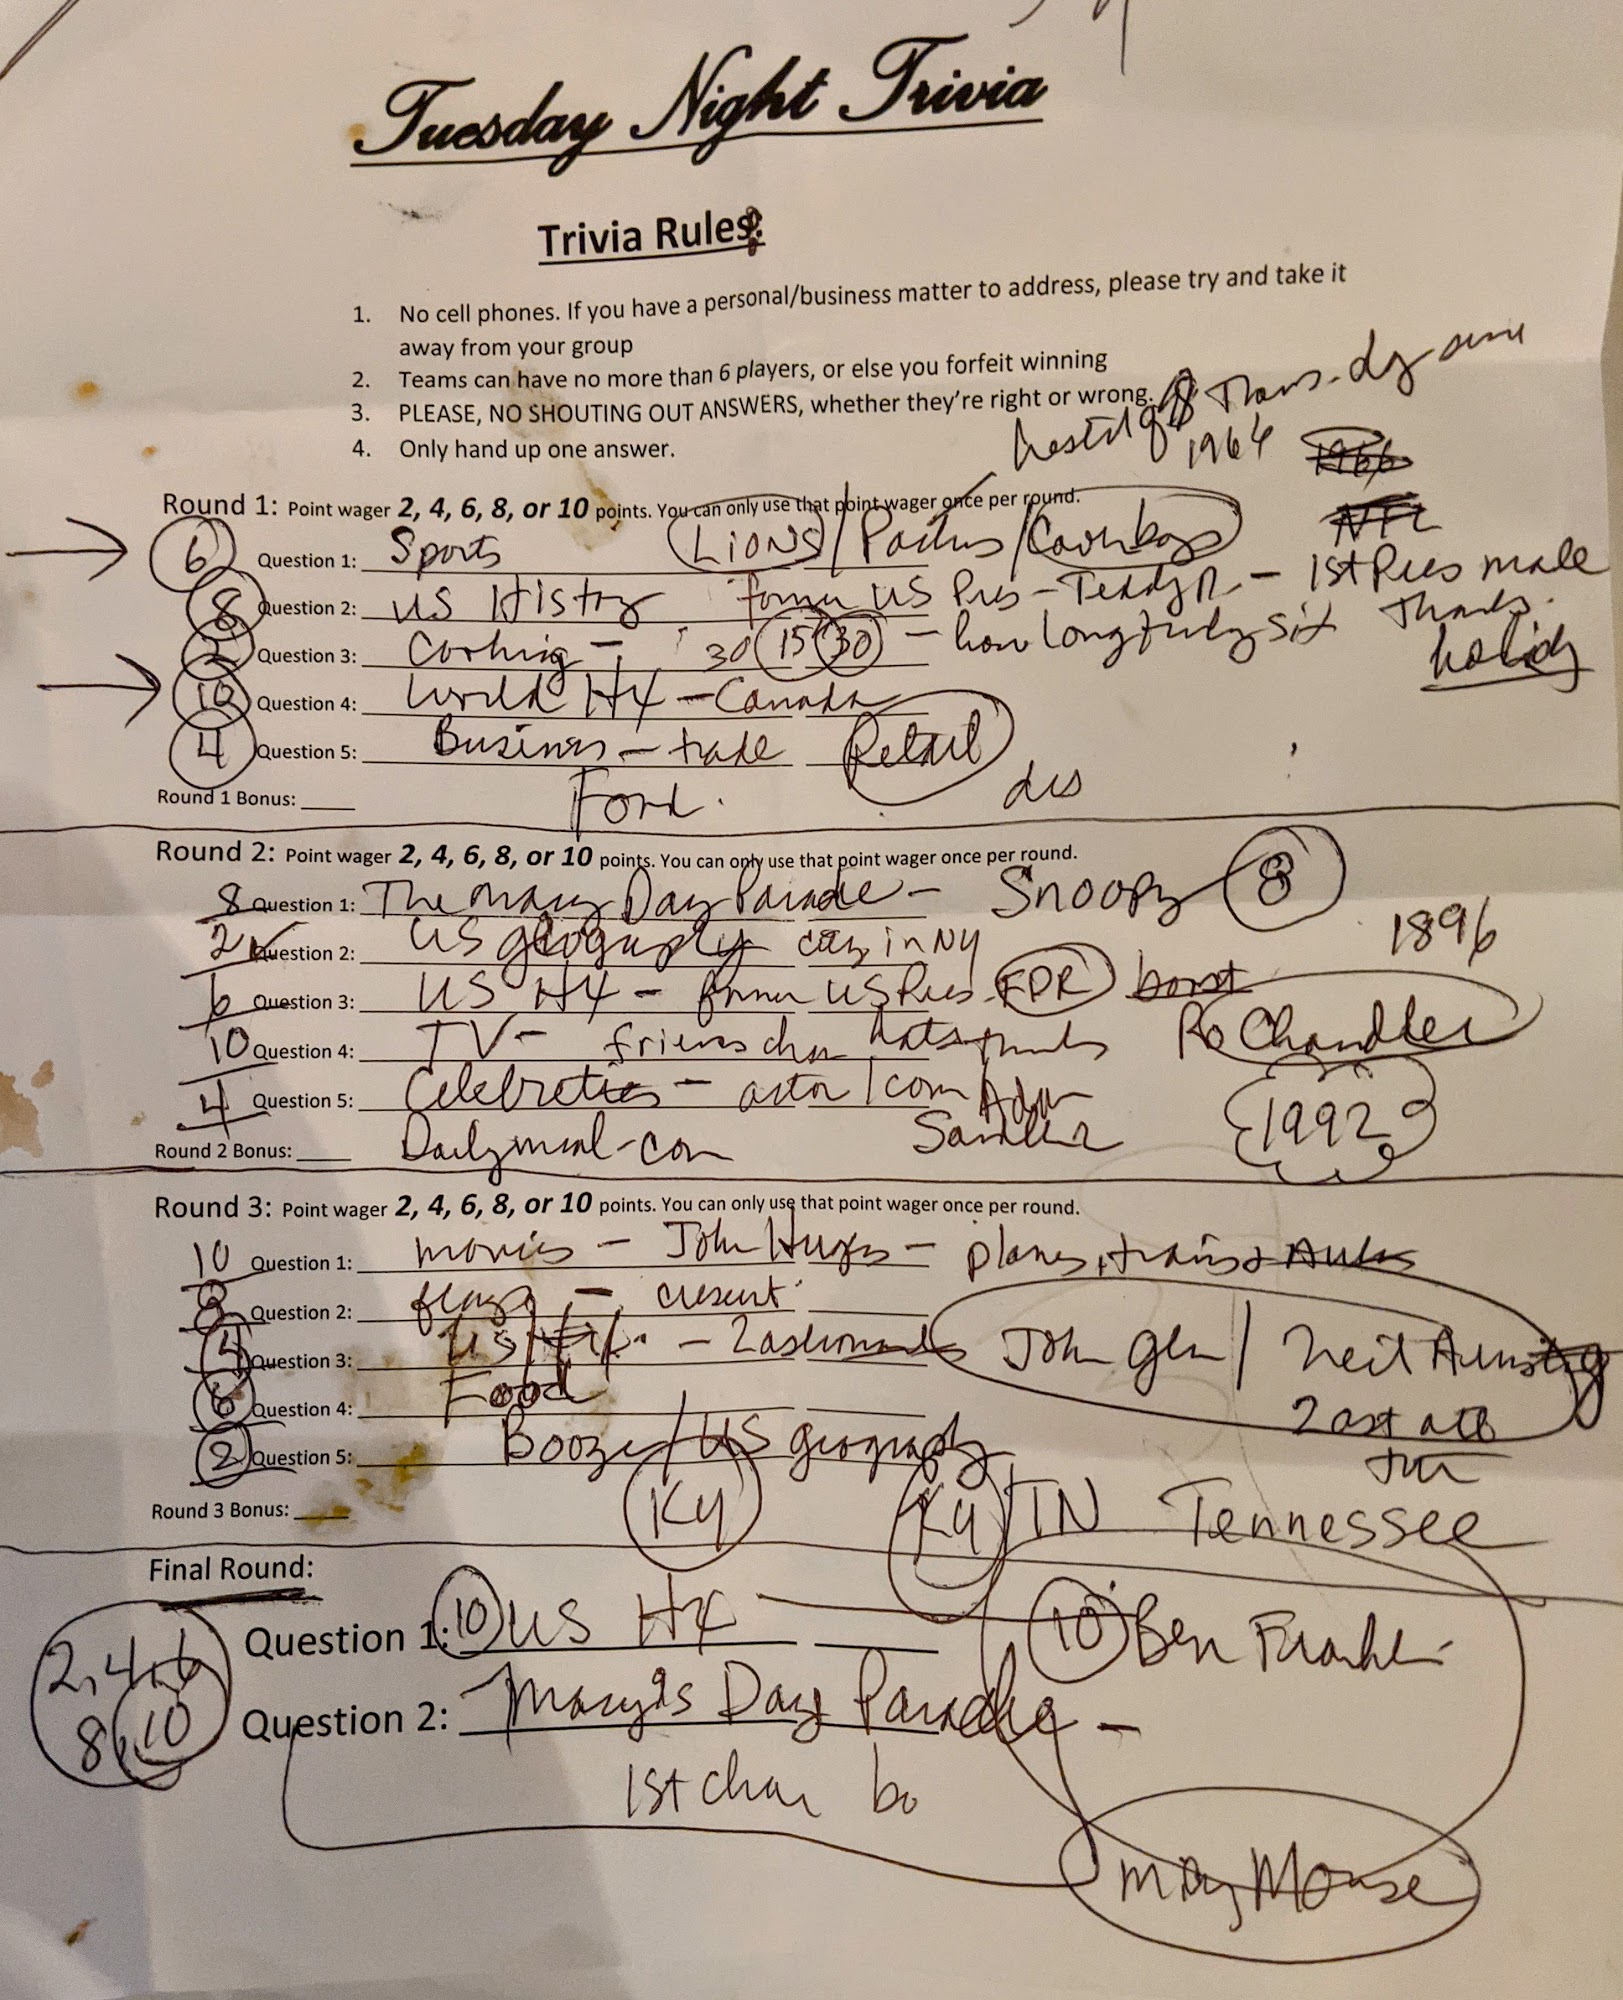 Tuesday Night Trivia
Trivia Rules:
1. No cell phones. If you have a personal/business matter to address, please try and take it
away from your group
2. Teams can have no more than 6 players, or else you forfeit winning
3. PLEASE, NO SHOUTING OUT ANSWERS, whether they're right or wrong.
4. Only hand up one answer.
1964
Round 1: Point wager 2, 4, 6, 8, or 10 points. You can only use that point wager once per round.
NFL
6 Question 1: Sports LIONS / / Cowboys
8 Question 2: US History former US Pres - Teddy R. - 1st Pres male
Thanks.
Question 3: Cooking - 30 15 30 - how long turkey sit
holidy
10 Question 4: World H4 - Canada
4 Question 5: Business - trade Retail
Round 1 Bonus: Ford. des
Round 2: Point wager 2, 4, 6, 8, or 10 points. You can only use that point wager once per round.
8 Question 1: The Macy Day Parade - Snoopy 8
2 Question 2: US geography city in NY 1896
6 Question 3: US H4 - former US Pres FDR
10 Question 4: TV - Chandler
4 Question 5: Celebreties - actor / com Adam
Sandler 1992
Round 2 Bonus: Dailymeal-com
Round 3: Point wager 2, 4, 6, 8, or 10 points. You can only use that point wager once per round.
10 Question 1: movies - John Huges - planes, trains +
8 Question 2: flags - cresent
4 Question 3: US - 2 John Glen / Neil Armstrg
6 Question 4: Food
2 Question 5: Booze / US geography
Round 3 Bonus: KY KY / TN Tennessee
Final Round:
Question 1: 10 US H4 10 Ben Franklin
2, 4, 6
8, 10 Question 2: Macy's Day Parade -
1st char bo
Mouse